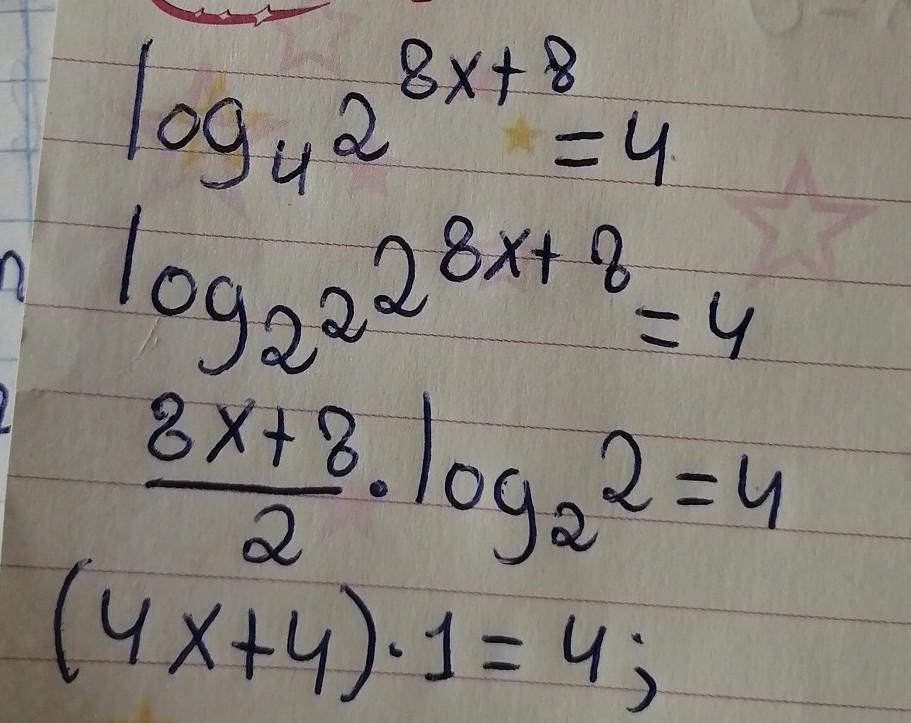 log₄ 2^(8x+8) = 4
log_(2²) 2^(8x+8) = 4
(8x+8)/2 · log₂ 2 = 4
(4x+4)·1 = 4;